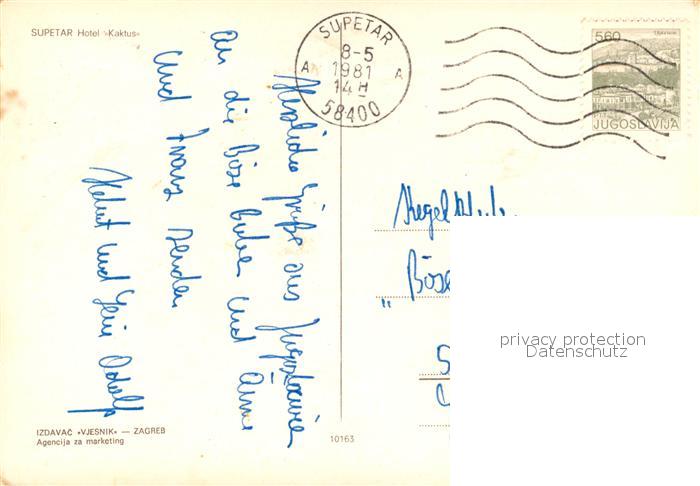 SUPETAR Hotel »Kaktus«
SUPETAR
8-5
1981
14H
A A
58400
5,60
JUGOSLAVIJA
Herzliche Grüße aus Jugoslavien
an die Böse Buben und Änne
und Franz senden
Helmut und Gerd Adolf
Kegelklub
"Böse
privacy protection
Datenschutz
IZDAVAČ »VJESNIK« — ZAGREB
Agencija za marketing
10163